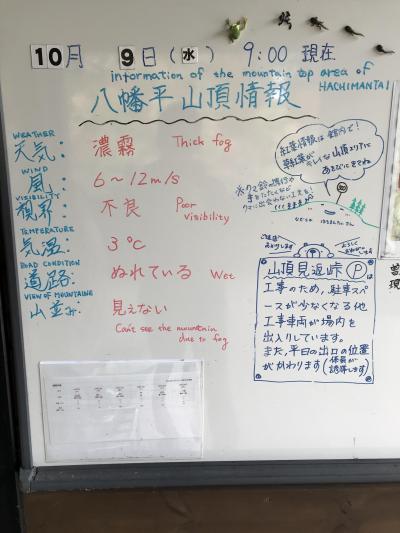 10月 9日(水) 9:00 現在
information of the mountain top area of
HACHIMANTAI
八幡平山頂情報
WEATHER
天気: 濃霧 Thick fog
WIND
風: 6~12m/s
VISIBILITY
視界: 不良 Poor visibility
TEMPERATURE
気温: 3℃
ROAD CONDITION
道路: ぬれている Wet
VIEW OF MOUNTAINS
山並み: 見えない
Can't see the mountain
due to fog
紅葉情報は館内で!
山頂エリアに
あそびにきてね
ご迷惑
おかけします
よろしく
山頂見返峠Ⓟは
工事のため、駐車スペ
ースが少なくなる他
工事車両が場内を
出入りしています。
また、平日の出口の位置
がかわります(係員が
誘導します)